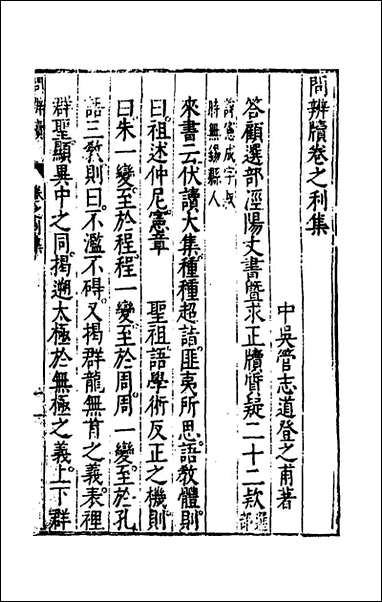 問辨牘卷之利集
中吳管志道登之甫著
答顧選部涇陽丈書暨求正牘質疑二十二款選部
諱憲成字叔
時無錫縣人
來書云伏讀大集種種超詣匪夷所思語教體則
曰祖述仲尼憲章　聖祖語學術反正之機則
曰朱一變至於程程一變至於周周一變至於孔
語三教則曰不濫不碍又揭群龍無首之義表裡
群聖顯異中之同揭遡太極於無極之義上下群
問辨牘
卷之利集